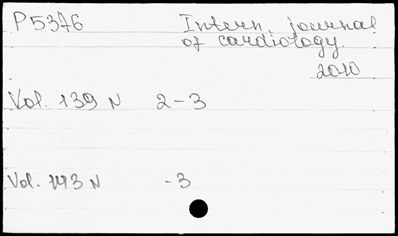 P5376 Intern. journal
of cardiology
2010
Vol. 139 N 2-3
Vol. 143 N -3